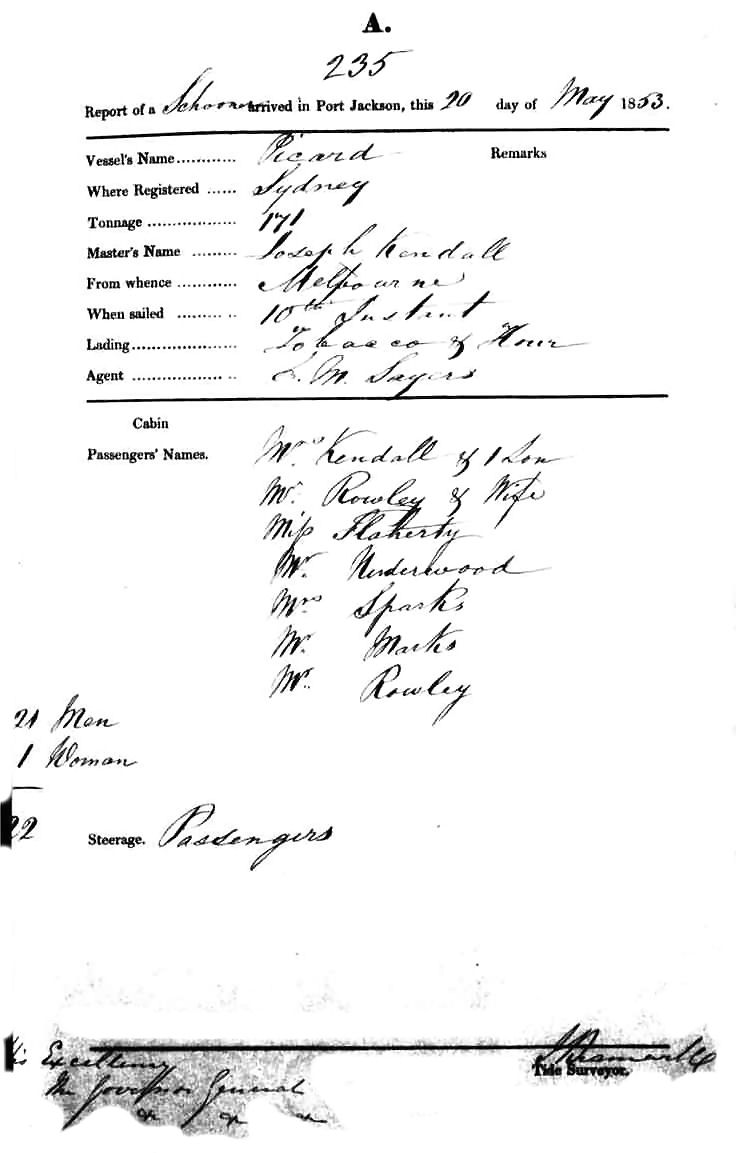 A.
235
Report of a Schooner arrived in Port Jackson, this 20 day of May 1853.
Vessel's Name............ Picard Remarks
Where Registered ...... Sydney
Tonnage .................. 171
Master's Name ......... Joseph Kendall
From whence ............ Melbourne
When sailed ......... .. 10th Instant
Lading..................... Tobacco & Flour
Agent .................... .. L. M. Sayers
Cabin
Passengers' Names. Mrs Kendall & 1 Son
Mr. Rowley & Wife
Miss Flaherty
Mr. Underwood
Mrs Sparks
Mr. Marks
Mr. Rowley
21 Men
1 Woman
22 Steerage. Passengers
His Excellency
Tide Surveyor.
The Governor General
&c &c &c